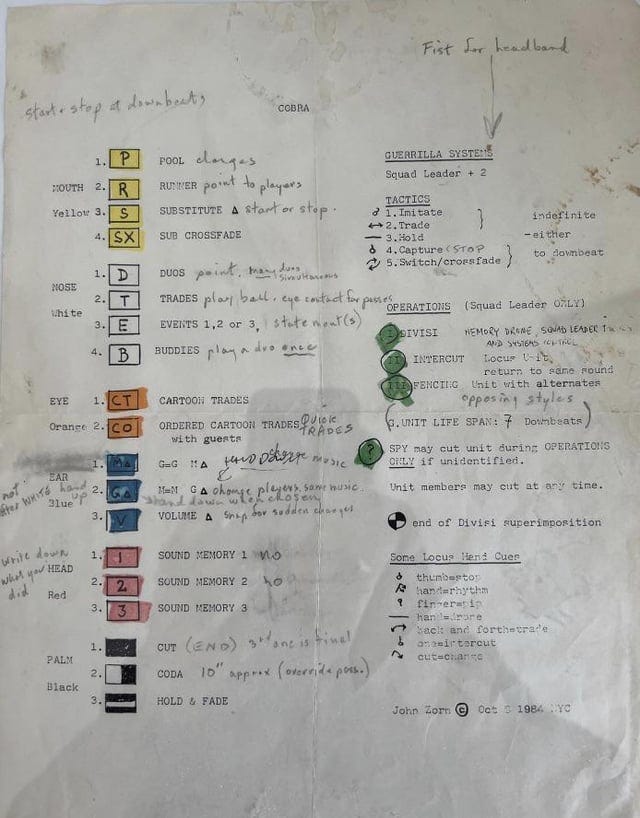 Fist for headband
start + stop at downbeats
COBRA
1. P POOL changes
MOUTH 2. R RUNNER point to players
Yellow 3. S SUBSTITUTE Δ start or stop.
4. SX SUB CROSSFADE
NOSE 1. D DUOS point, many duos simultaneous
White 2. T TRADES play ball, eye contact for passes
3. E EVENTS 1,2 or 3, statement(s)
4. B BUDDIES play a duo once
EYE 1. CT CARTOON TRADES
Orange 2. CO ORDERED CARTOON TRADES QUICK TRADES
with guests
1. MΔ G=G MΔ music
EAR 2. GΔ M=M GΔ change players, same music
Blue hand down when chosen
3. V VOLUME Δ snap for sudden changes
not after white hand up
write down what you did
HEAD 1. 1 SOUND MEMORY 1 no
Red 2. 2 SOUND MEMORY 2 no
3. 3 SOUND MEMORY 3
PALM 1. CUT (END) 3rd one is final
Black 2. CODA 10" approx (override poss.)
3. HOLD & FADE
GUERRILLA SYSTEMS
Squad Leader + 2
TACTICS
1. Imitate
2. Trade
3. Hold
4. Capture (STOP
5. Switch/crossfade
indefinite
-either
to downbeat
OPERATIONS (Squad Leader ONLY)
I DIVISI MEMORY DRONE, SQUAD LEADER
AND SYSTEMS CONTROL
II INTERCUT Locus Unit,
return to same sound
III FENCING Unit with alternates
opposing styles
(G. UNIT LIFE SPAN: 7 Downbeats)
? SPY may cut unit during OPERATIONS
ONLY if unidentified.
Unit members may cut at any time.
end of Divisi superimposition
Some Locus Hand Cues
thumb=stop
hand=rhythm
finger=pip
hand=drone
back and forth=trade
one=intercut
cut=change
John Zorn © Oct 1984 NYC